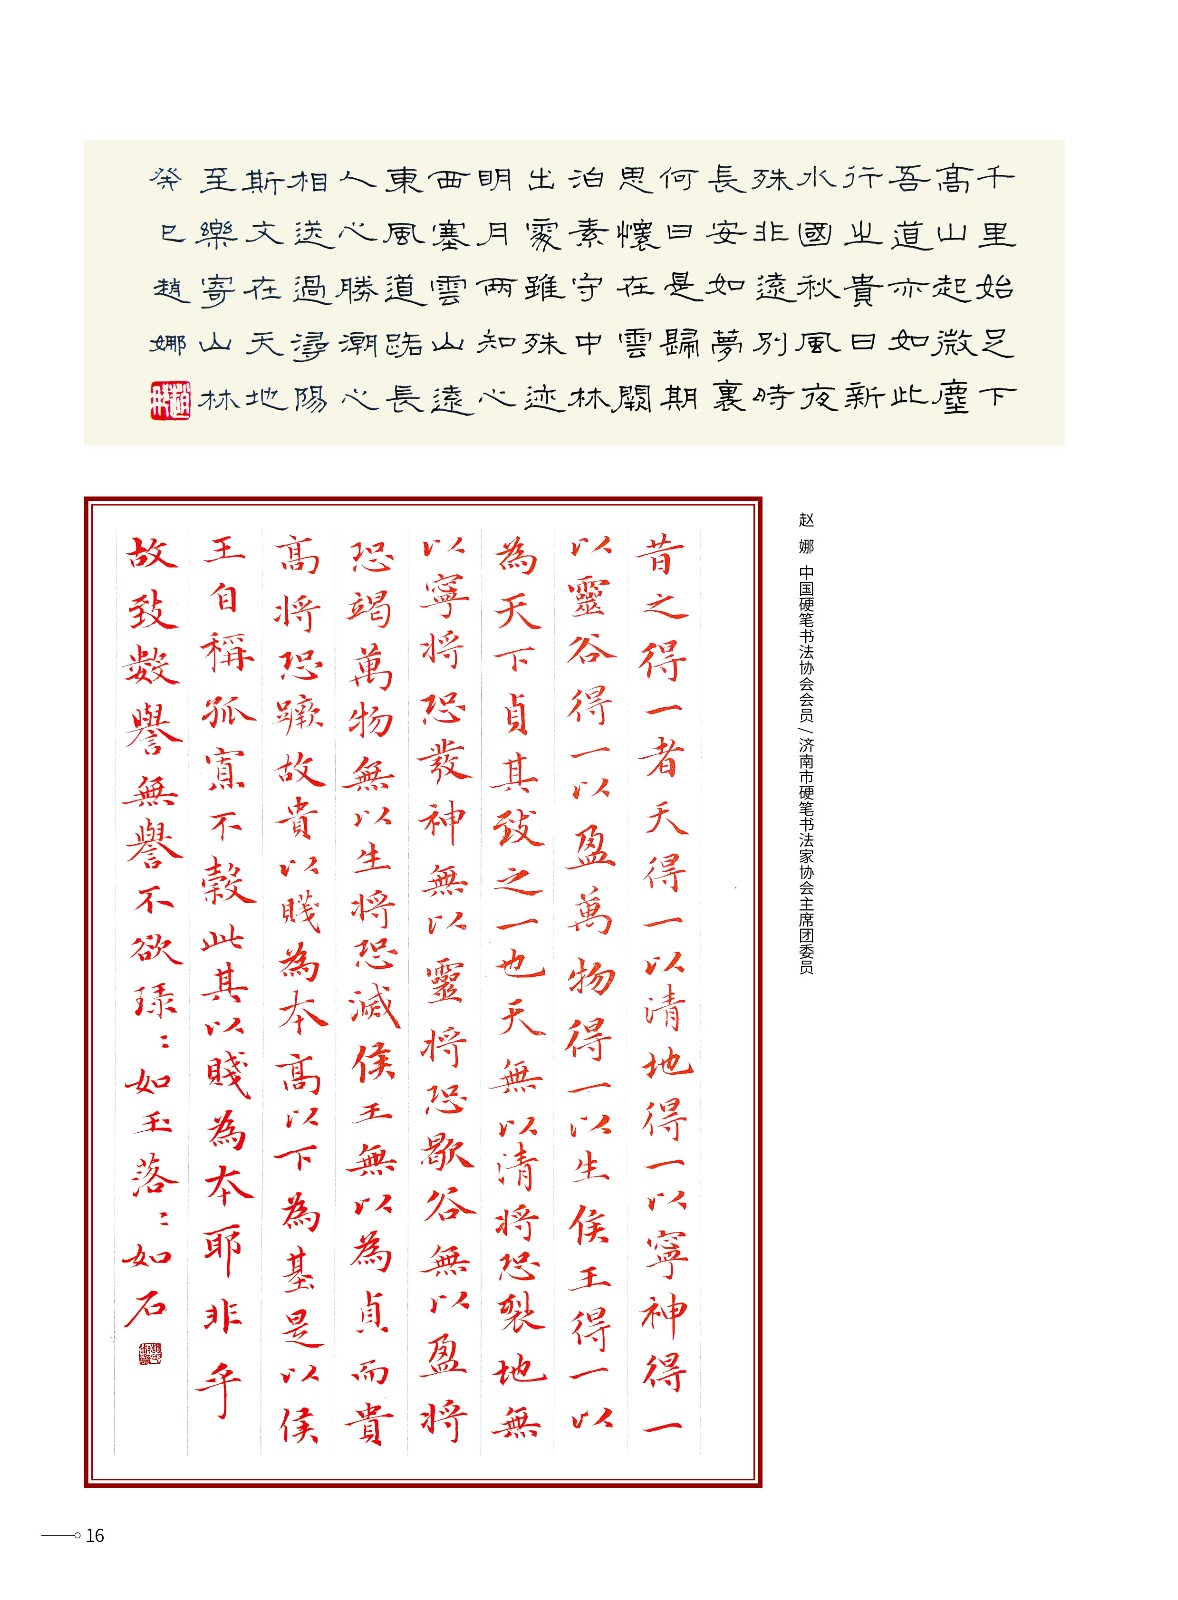 千里始足下
高山起微塵
吾道亦如此
行之貴日新
水國秋風夜
殊非遠別時
長安如夢裏
何日是歸期
思懷在雲闕
泊素守中林
出處雖殊迹
明月兩知心
西塞雲山遠
東風道路長
人心勝潮心
相送過潯陽
斯文在天地
至樂寄山林
癸巳趙娜
昔之得一者天得一以清地得一以寧神得一
以靈谷得一以盈萬物得一以生侯王得一以
為天下貞其致之一也天無以清將恐裂地無
以寧將恐發神無以靈將恐歇谷無以盈將
恐竭萬物無以生將恐滅侯王無以為貞而貴
高將恐蹶故貴以賤為本高以下為基是以侯
王自稱孤寡不穀此其以賤為本耶非乎
故致數譽無譽不欲琭：如玉落：如石
赵 娜 中国硬笔书法协会会员/济南市硬笔书法家协会主席团委员
16